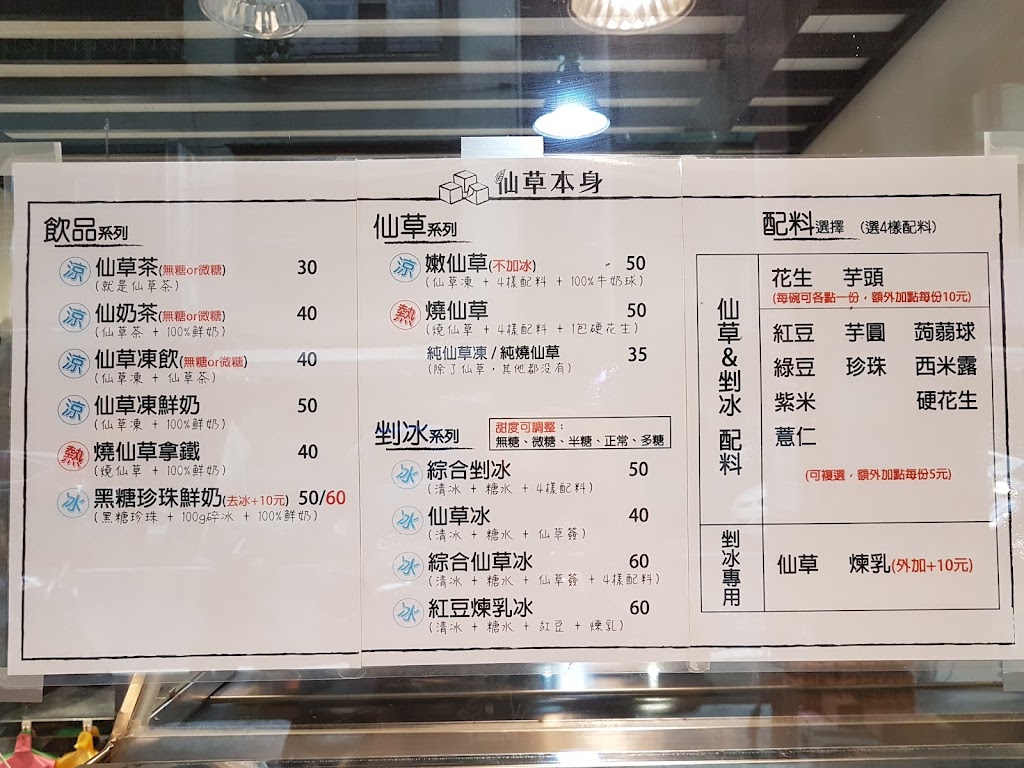 仙草本身
飲品系列
涼 仙草茶(無糖or微糖) 30
(就是仙草茶)
涼 仙奶茶(無糖or微糖) 40
(仙草茶 + 100%鮮奶)
涼 仙草凍飲(無糖or微糖) 40
(仙草凍 + 仙草茶)
涼 仙草凍鮮奶 50
(仙草凍 + 100%鮮奶)
熱 燒仙草拿鐵 40
(燒仙草 + 100%鮮奶)
冰 黑糖珍珠鮮奶(去冰+10元) 50/60
(黑糖珍珠 + 100g碎冰 + 100%鮮奶)
仙草系列
涼 嫩仙草(不加冰) 50
(仙草凍 + 4樣配料 + 100%牛奶球)
熱 燒仙草 50
(燒仙草 + 4樣配料 + 1包硬花生)
純仙草凍/純燒仙草 35
(除了仙草,其他都沒有)
剉冰系列
甜度可調整:
無糖、微糖、半糖、正常、多糖
冰 綜合剉冰 50
(清冰 + 糖水 + 4樣配料)
冰 仙草冰 40
(清冰 + 糖水 + 仙草簽)
冰 綜合仙草冰 60
(清冰 + 糖水 + 仙草簽 + 4樣配料)
冰 紅豆煉乳冰 60
(清冰 + 糖水 + 紅豆 + 煉乳)
配料選擇 (選4樣配料)
仙草&剉冰 配料
花生 芋頭
(每碗可各點一份,額外加點每份10元)
紅豆 芋圓 蒟蒻球
綠豆 珍珠 西米露
紫米 硬花生
薏仁
(可複選,額外加點每份5元)
剉冰專用
仙草 煉乳(外加+10元)